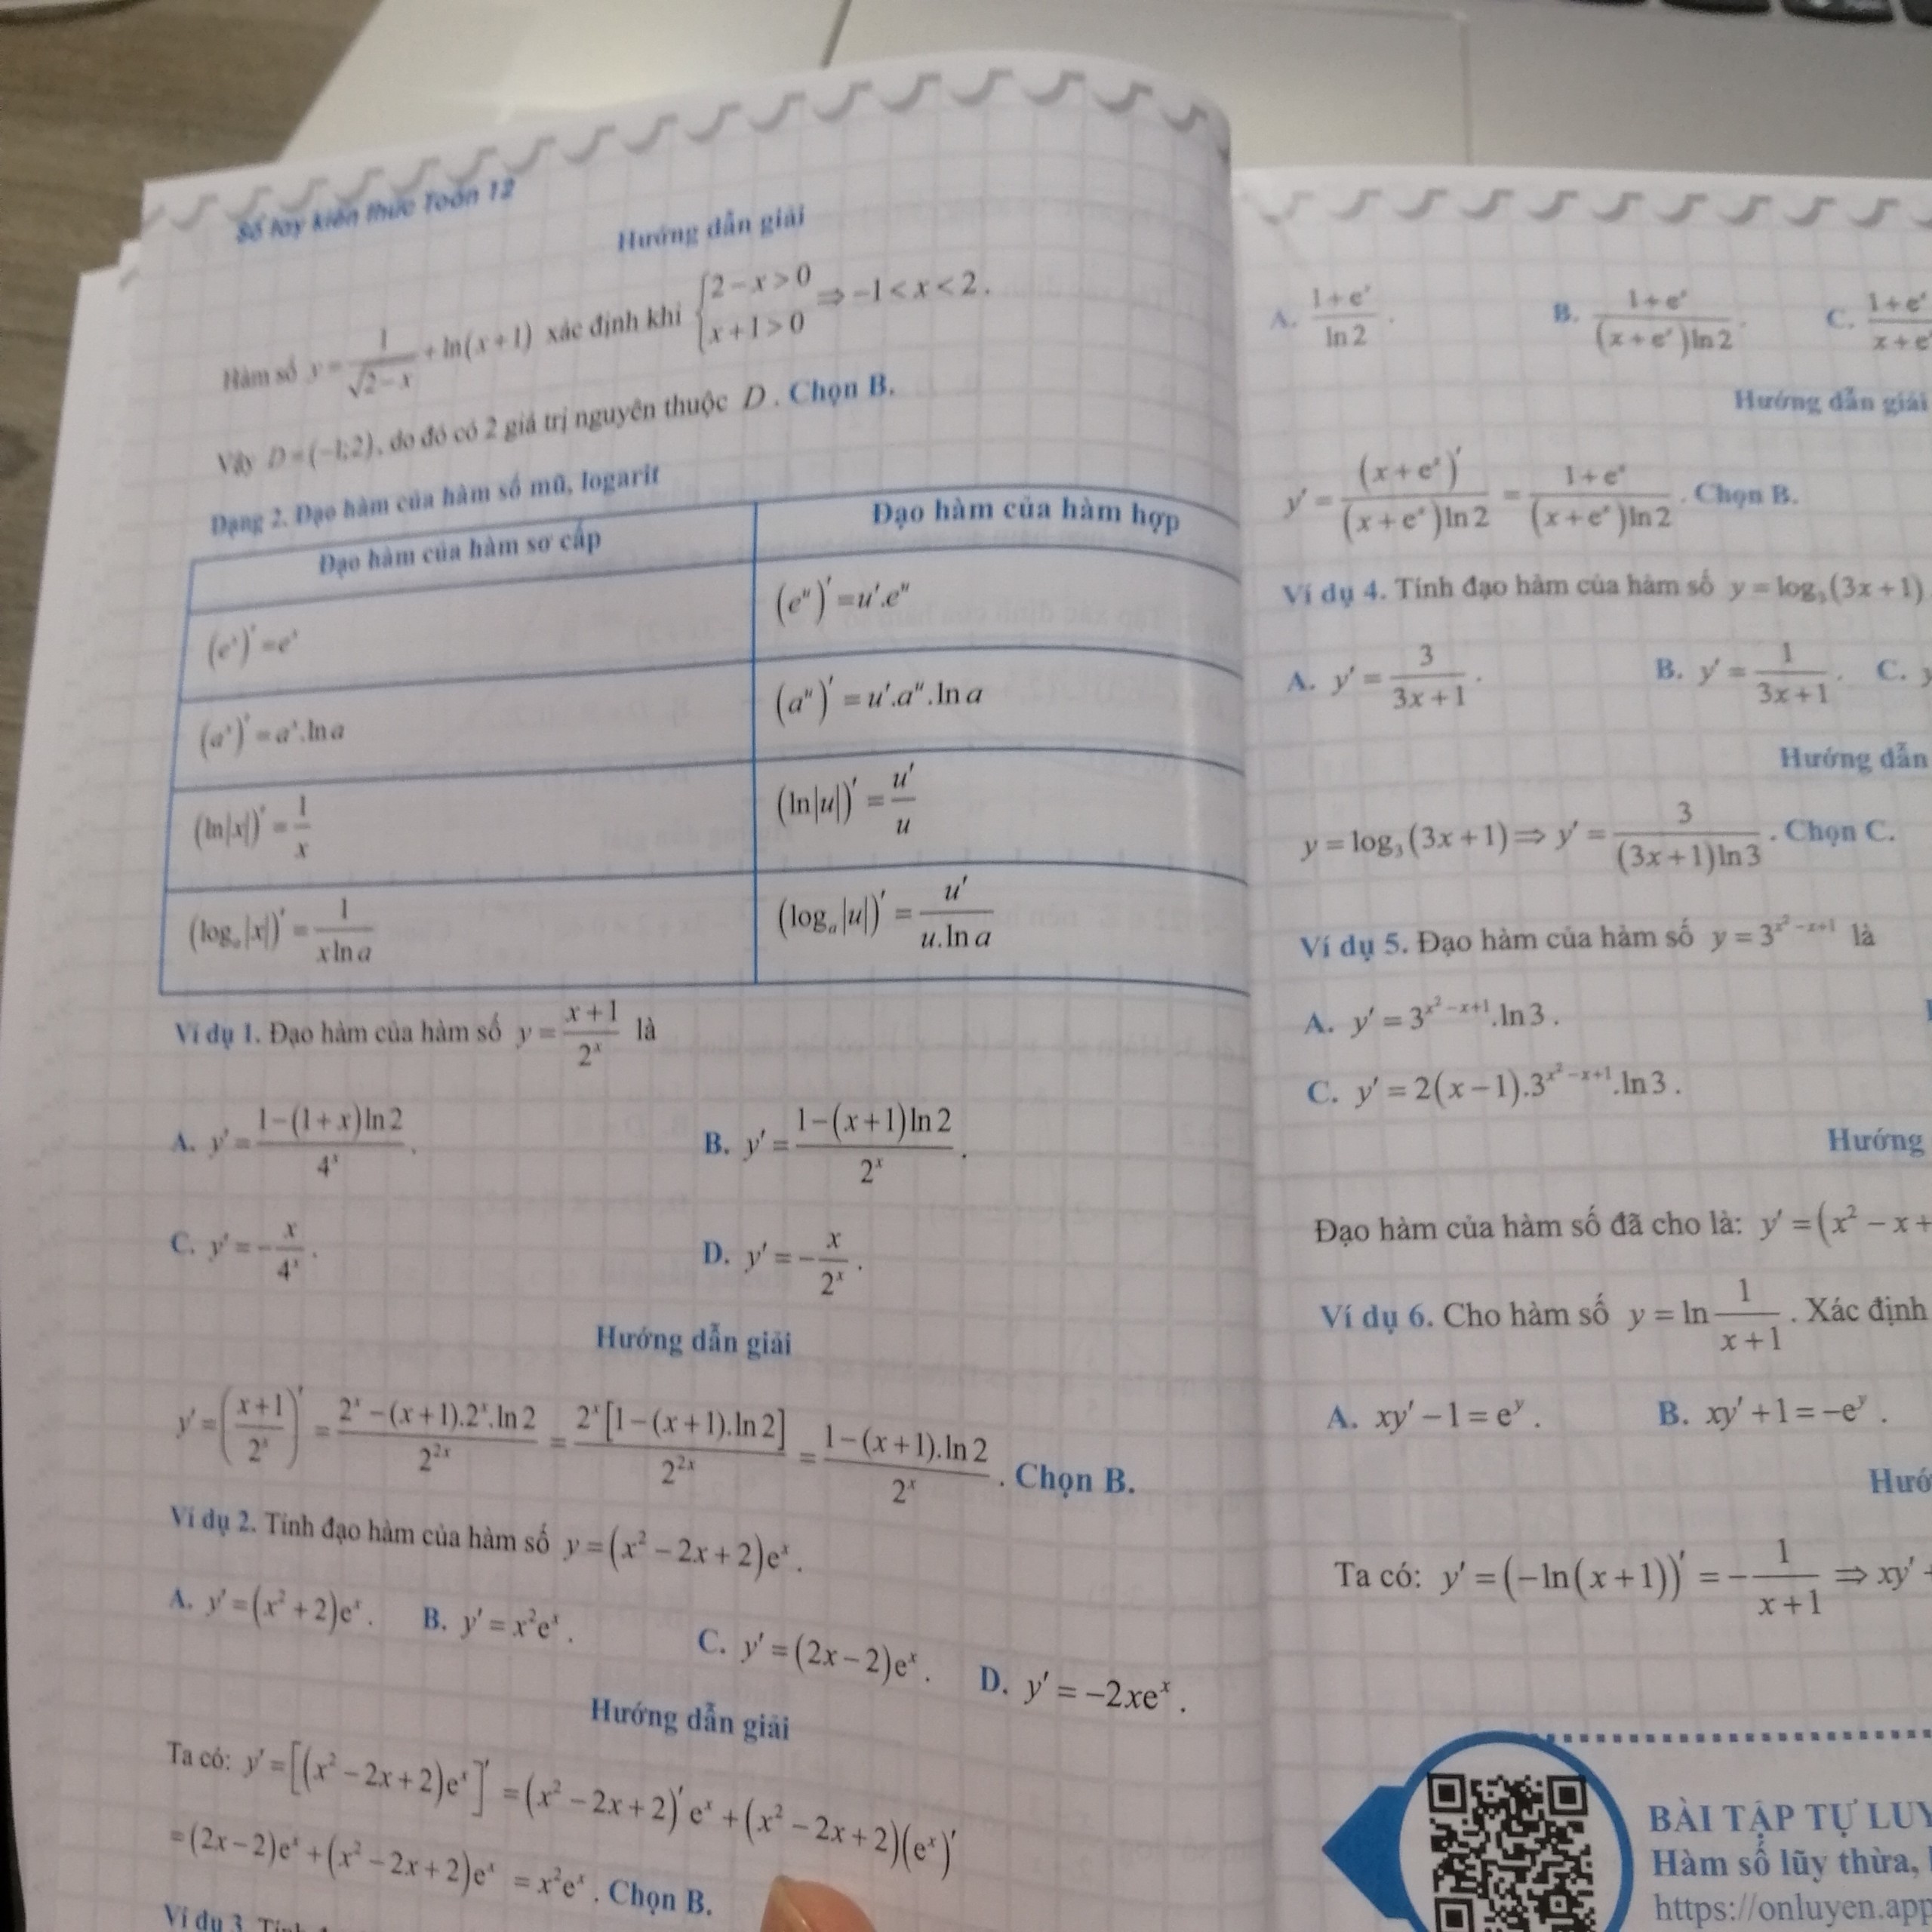 Sổ tay kiến thức Toán 12
Hướng dẫn giải
Hàm số y = 1/√(2−x) + ln(x+1) xác định khi {2−x>0; x+1>0 ⇒ −1<x<2.
Vậy D=(−1;2), do đó có 2 giá trị nguyên thuộc D. Chọn B.
Dạng 2. Đạo hàm của hàm số mũ, logarit
Đạo hàm của hàm sơ cấp	Đạo hàm của hàm hợp
(eˣ)′=eˣ	(eᵘ)′=u′.eᵘ
(aˣ)′=aˣ.ln a	(aᵘ)′=u′.aᵘ.ln a
(ln|x|)′=1/x	(ln|u|)′=u′/u
(logₐ|x|)′=1/(x ln a)	(logₐ|u|)′=u′/(u.ln a)
Ví dụ 1. Đạo hàm của hàm số y=(x+1)/2ˣ là
A. y′=(1−(1+x)ln 2)/4ˣ. B. y′=(1−(x+1)ln 2)/2ˣ.
C. y′=−x/4ˣ. D. y′=−x/2ˣ.
Hướng dẫn giải
y′=((x+1)/2ˣ)′=(2ˣ−(x+1).2ˣ.ln 2)/2²ˣ=(2ˣ[1−(x+1).ln 2])/2²ˣ=(1−(x+1).ln 2)/2ˣ. Chọn B.
Ví dụ 2. Tính đạo hàm của hàm số y=(x²−2x+2)eˣ.
A. y′=(x²+2)eˣ. B. y′=x²eˣ. C. y′=(2x−2)eˣ. D. y′=−2xeˣ.
Hướng dẫn giải
Ta có: y′=[(x²−2x+2)eˣ]′=(x²−2x+2)′eˣ+(x²−2x+2)(eˣ)′
=(2x−2)eˣ+(x²−2x+2)eˣ=x²eˣ. Chọn B.
Ví dụ 3.
A. (1+eˣ)/ln 2. B. (1+eˣ)/((x+eˣ)ln 2). C. (1+eˣ)/(x+eˣ
Hướng dẫn giải
y′=(x+eˣ)′/((x+eˣ)ln 2)=(1+eˣ)/((x+eˣ)ln 2). Chọn B.
Ví dụ 4. Tính đạo hàm của hàm số y=log₃(3x+1)
A. y′=3/(3x+1). B. y′=1/(3x+1). C.
Hướng dẫn
y=log₃(3x+1)⇒y′=3/((3x+1)ln 3). Chọn C.
Ví dụ 5. Đạo hàm của hàm số y=3^(x²−x+1) là
A. y′=3^(x²−x+1).ln 3.
C. y′=2(x−1).3^(x²−x+1).ln 3.
Hướng
Đạo hàm của hàm số đã cho là: y′=(x²−x+
Ví dụ 6. Cho hàm số y=ln 1/(x+1). Xác định
A. xy′−1=eʸ. B. xy′+1=−eʸ.
Ta có: y′=(−ln(x+1))′=−1/(x+1)⇒xy′
BÀI TẬP TỰ
Hàm số lũy thừa,
https://onluyen.app